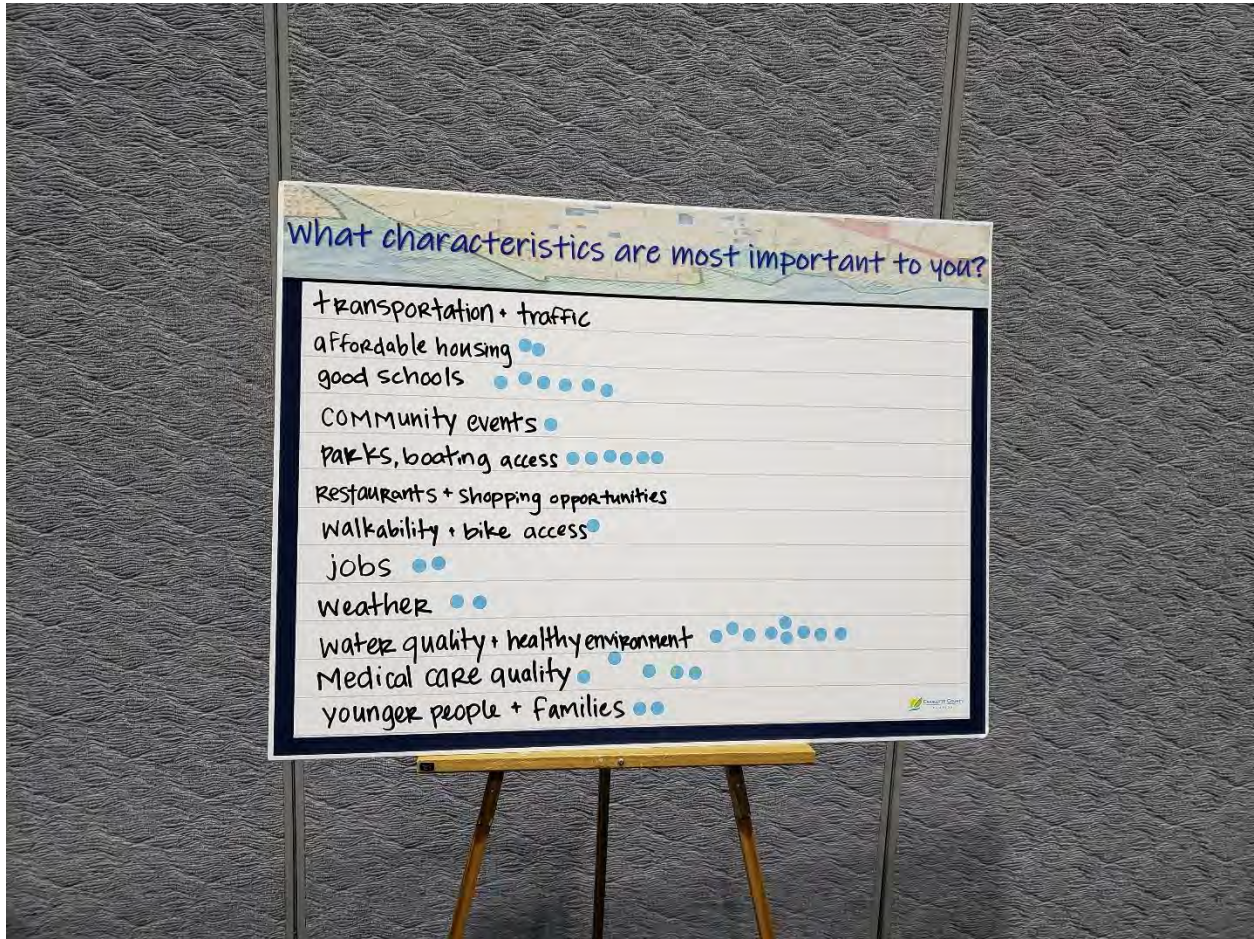 What characteristics are most important to you?
transportation + traffic
affordable housing
good schools
community events
parks, boating access
Restaurants + shopping opportunities
walkability + bike access
jobs
weather
water quality + healthy environment
Medical care quality
younger people + families